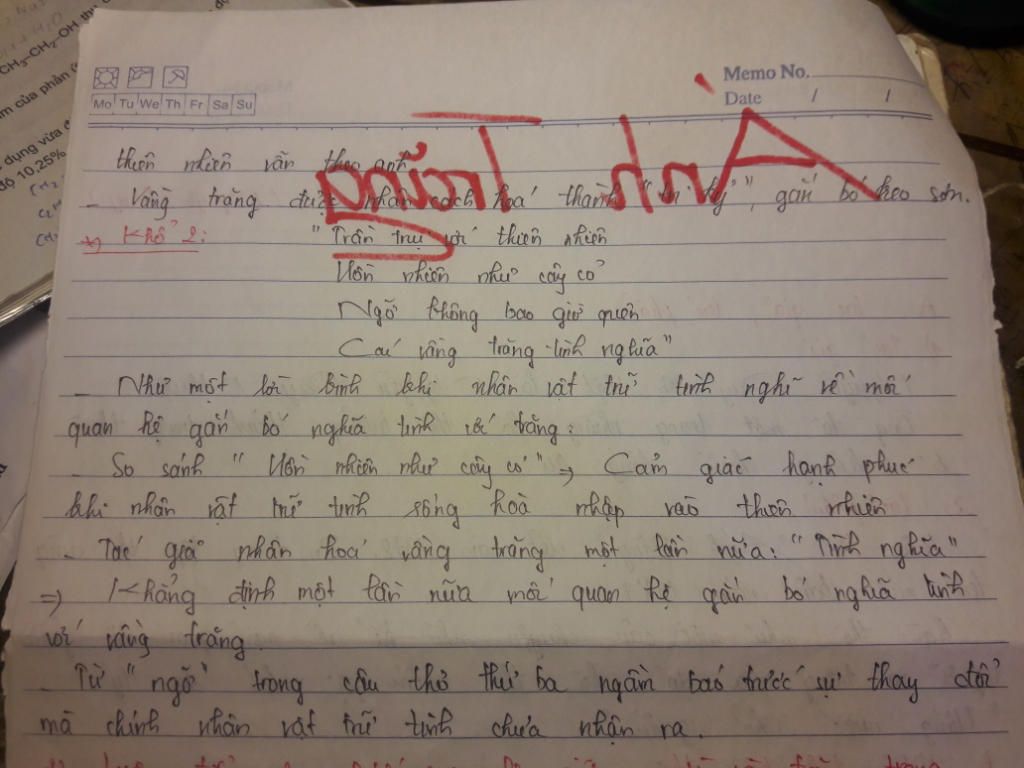 Memo No.
Mo Tu We Th Fr Sa Su
Date / /
Ánh Trăng
thiên nhiên vẫn theo anh
- Vầng trăng được nhân cách hoá thành "tri kỷ", gắn bó keo sơn.
=> Khổ 2: "Trần trụi với thiên nhiên
Hồn nhiên như cây cỏ
Ngỡ không bao giờ quên
Cái vầng trăng tình nghĩa"
- Như một lời bình khi nhân vật trữ tình nghĩ về mối
quan hệ gắn bó nghĩa tình với trăng.
- So sánh "Hồn nhiên như cây cỏ" => Cảm giác hạnh phúc
khi nhân vật trữ tình sống hoà nhập vào thiên nhiên
- Tác giả nhân hoá vầng trăng một lần nữa: "Tình nghĩa"
=> Khẳng định một lần nữa mối quan hệ gắn bó nghĩa tình
với vầng trăng.
- Từ "ngỡ" trong câu thơ thứ ba ngầm báo trước sự thay đổi
mà chính nhân vật trữ tình chưa nhận ra.